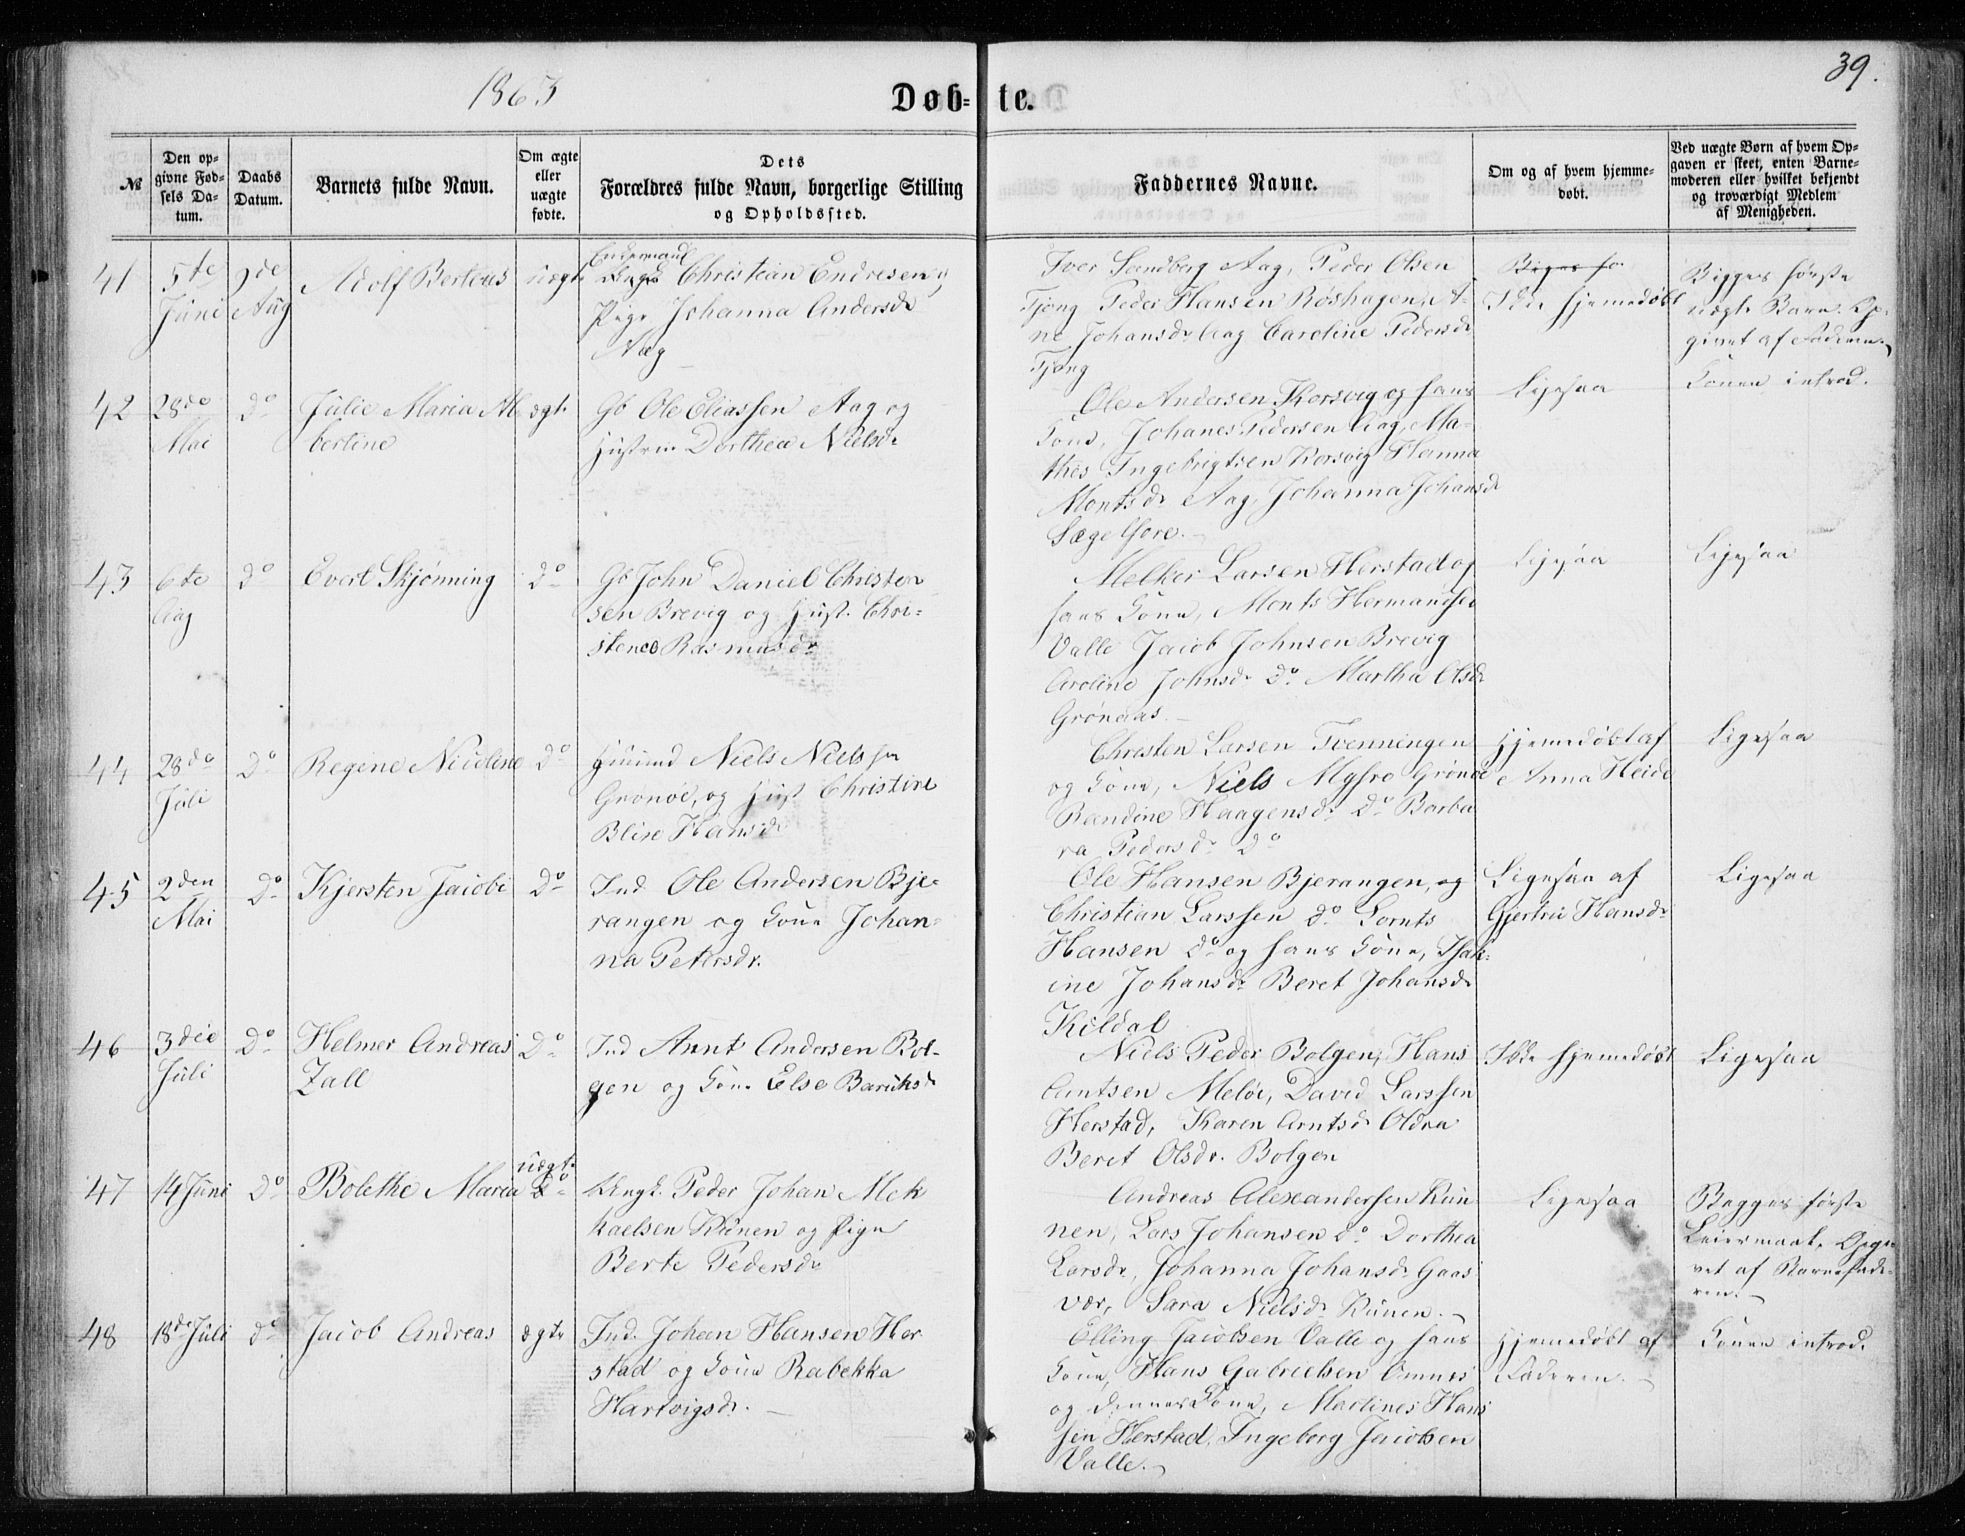 39.
1863
Døb- te.
№
Den op-
givne Fød-
sels Da-
tum.
Daabs
Datum.
Barnets fulde Navn.
Om ægte
eller
uægte
fødte.
Dets
Forældres fulde Navn, borgerlige Stilling
og Opholdssted.
Faddernes Navne.
Om og af hvem hjemme-
døbt.
Ved uægte Børn af hvem Op-
gaven er skeet, enten Barne-
moderen eller hvilket bekjendt
og troværdigt Medlem
af Menigheden.
41
5te
Juni
9de
Aug
Adolf Berteus
uægte
Christian Endresen og
Pige Johanna Andersdr
Aag
Iver Sandberg Aag, Peder Olsen
Tjong Peder Hansen Røshagen, A-
ne Johansdr Aag Caroline Pedersdr
Tjong
Ikke hjemmedøbt
Begges første
uægte Barn. Op-
givet af Faderen.
42
28de
Mai
do
Julie Maria Al
bertine
ægte
Gb Ole Eliassen Aag og
Hustru Dorthea Nielsdr
Ole Andersen Korsvig og hans
Kone, Johanes Pedersen Aag, Ma-
thes Ingebrigtsen Korsvig Hanna
Montsdr Aag, Johanna Johansdr
Sægelfore.
Ligesaa
Konen introd.
43
6te
Aug
do
Evert Skjønning
do
Gb John Daniel Christen
sen Brevig og Hust. Chri-
stence Rasmusdr
Melker Larsen Herstad og
hans Kone, Monts Hermandsen
Valle Jacob Johnsen Brevig
Caroline Johnsdr do Martha Olsdr
Grønaas.
Ligesaa
Ligesaa
44
28de
Juli
do
Regine Nicoline
do
Huusmd Niels Nielssen
Grønøe, og Hust Christine
Bline Hansdr
Christen Larsen Tvenningen
og Kone, Niels Myhre Grønøe
Randine Haagensdr do Barba
ra Pedersdr do
Hjemmedøbt af
Anna Heide
Ligesaa
45
2den
Mai
do
Kjersten Jacobe
do
Ind. Ole Andersen Bje-
rangen og Kone Johan-
na Petersdr.
Ole Hansen Bjerangen, og
Christian Larssen do Lornts
Hansen do og hans Kone, Isak-
ine Johansdr Beret Johansdr
Kildal
Ligesaa af
Gjertru Hansdr
Ligesaa
46
3die
Juli
do
Helmer Andreas
Zall
do
Ind Arnt Andersen Bol-
gen og Kone Else Baruksdr
Niels Peder Bolgen, Hans
Arntsen Meløe, David Larssen
Herstad, Karen Arntsdr Oldra
Beret Olsdr. Bolgen
Ikke hjemmedøbt
Ligesaa
47
14 Juni
do
Bolethe Maria
uægte
do
Ungk. Peder Johan Mek
kaelsen Kunen og Pige
Berte Pedersdr
Andreas Alexandersen Kun
nen, Lars Johansen do Dorthea
Larsdr, Johanna Johansdr Gaas
vær, Sara Nielsdr Kunen.
Ligesaa
Begges første
Leiermaal. Opgi-
vet af Barnefade-
ren.
48
18de Juli
do
Jacob Andreas
ægte
Ind. Johan Hansen Her-
stad og Kone Rabekka
Hartvigsdr.
Elling Jacobsen Valle og hans
Kone, Hans Gabrielsen Ømnes
og dennes Kone, Martines Hans
sen Herstad, Ingeborg Jacobsen
Valle.
Hjemmedøbt af
Faderen.
Konen introd.